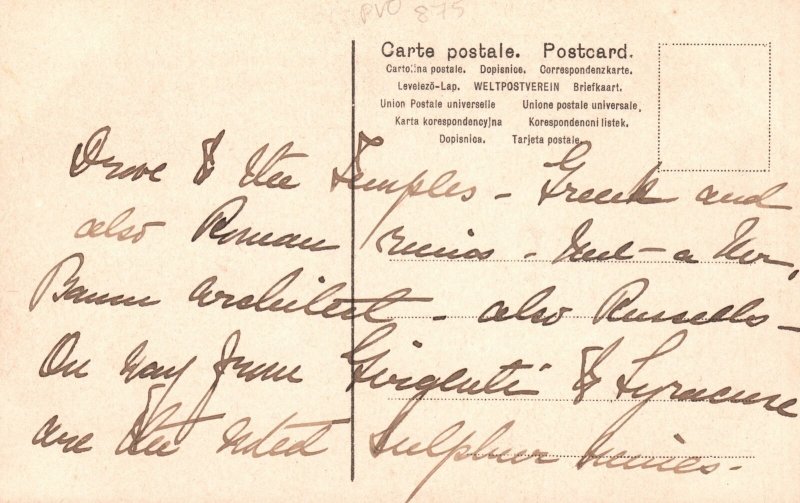 PVO 875
Carte postale. Postcard.
Cartolina postale. Dopisnice. Correspondenzkarte.
Levelező-Lap. WELTPOSTVEREIN Briefkaart.
Union Postale universelle Unione postale universale,
Karta korespondencyjna Korespondencni listek.
Dopisnica. Tarjeta postale.
Drove to the Temples - Greek and
also Roman ruins - Met - a Mr.
architect - also Russells -
On way from Girgenti to Syracuse
are the noted Sulphur mines -